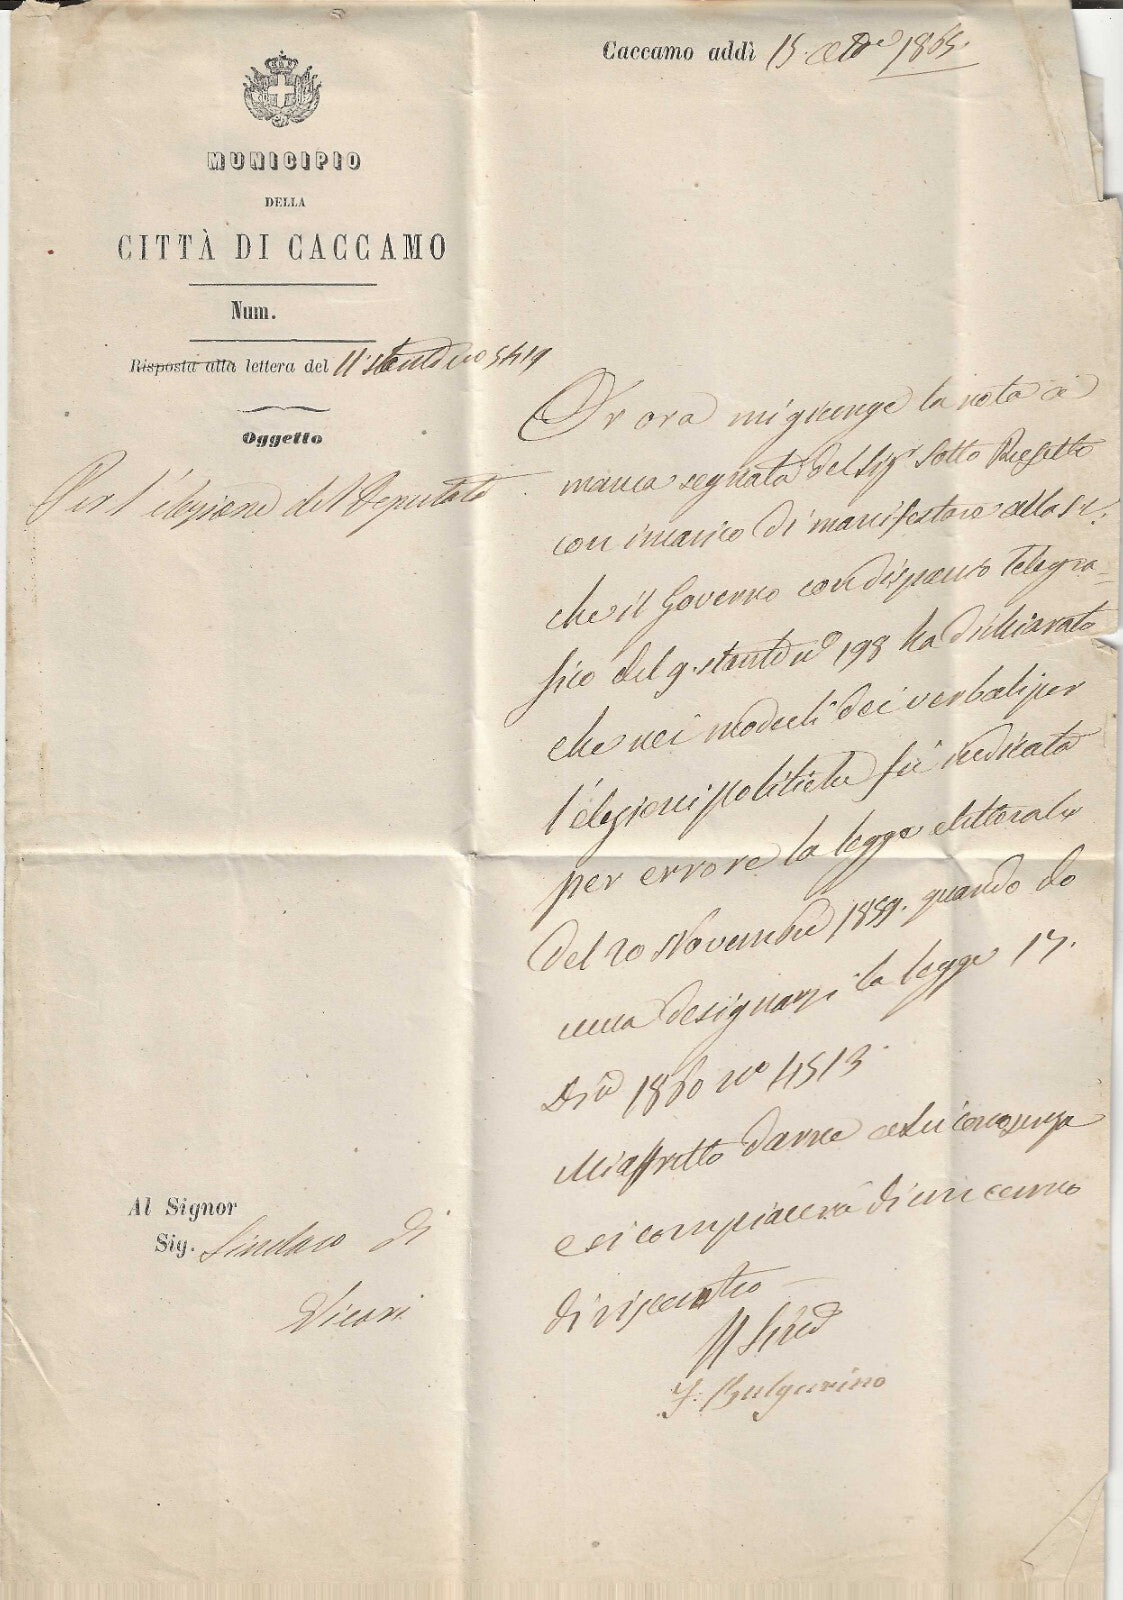 Caccamo addì 15. 8bre 1865.
MUNICIPIO
DELLA
CITTÀ DI CACCAMO
Num.
Risposta alla lettera del 11 stante no 5419
Oggetto
Per l'elezione del Deputato
Al Signor
Sig. Sindaco di
Vicari
Or ora mi giunge la nota a
manca segnata del Sigr Sotto Prefetto
con incarico di manifestare alla S. V.
che il Governo con dispaccio telegra-
fico del 9. stante no 198 ha dichiarato
che nei modelli dei verbali per
l'elezioni politiche fù indicata
per errore la legge elettorale
del 20 Novembre 1859. quando do
veva designarsi la legge 17.
Dre 1860 no 4513.
Mi affretto darne a Lei conoscenza
e si compiacerà di un cenno
di riscontro
Il Sind
F. Bulgarino